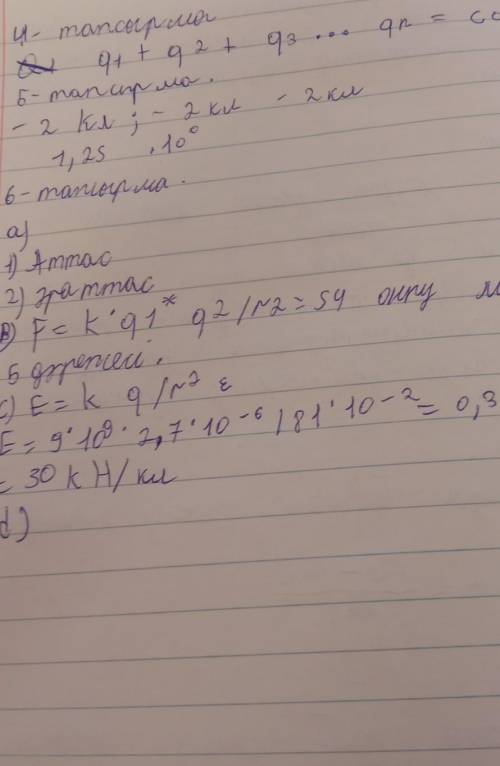 4-тапсырма
q1 + q2 + q3 ... qn =
5-тапсырма.
- 2 Кл; - 2 кл - 2 кл
1,25 · 10
6-тапсырма.
а)
1) Аттас
2) эраттас
В) F = k · q1 * q2/r2 = 54 онру
5 дәрежей.
с) E = k q/r² ε
E = 9 · 10⁹ · 2,7 · 10⁻⁶ / 81 · 10⁻² = 0,3
= 30 k Н/кл
d)